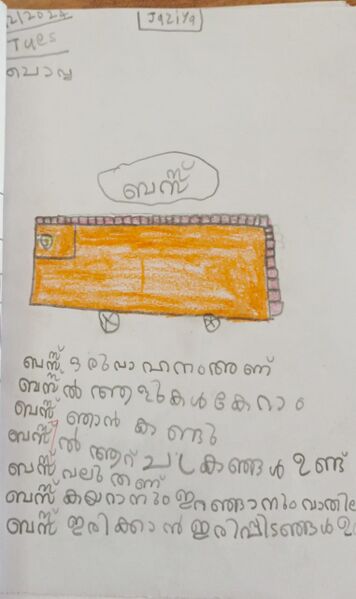 2/2024
Jaziya
Tues
ചൊവ്വ
ബസ്സ്
ബസ്സ് ഒരു വാഹനംആണ്
ബസ്സ് ൽ ആളുകൾ കേറാം
ബസ്സ് ഞാൻ കണ്ടു
ബസ്സ് ൽ ആറ് ചക്രങ്ങൾ ഉണ്ട്
ബസ്സ് വലുതണ്
ബസ്സ് കയറാനും ഇറങ്ങാനും വാതി
ബസ്സ് ഇരിക്കാൻ ഇരിപ്പിടങ്ങൾ ഉ